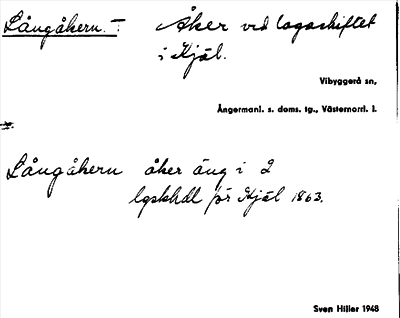 Långåkern. I: Åker vid lagaskiftet
i Hjäl.
Vibyggerå sn,
Ångermanl. s. doms. tg., Västernorrl. l.
Långåkern åker äng i 2
lgskhdl för Hjäl 1863.
Sven Hiller 1948